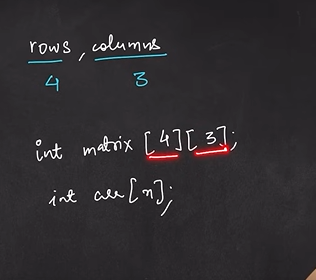 rows, columns
4 3
int matrix [4][3];
int arr[n];